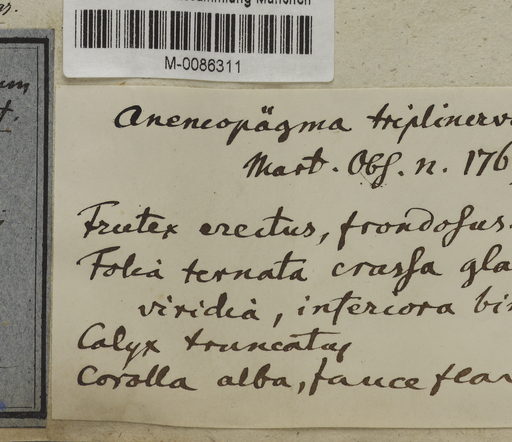 sammlung München
M-0086311
Anemopägma triplinerv
Mart. Obs. n. 176
Frutex erectus, frondosus.
Folia ternata crassa gla
viridia, inferiora bin
Calyx truncatus
Corolla alba, fauce flav